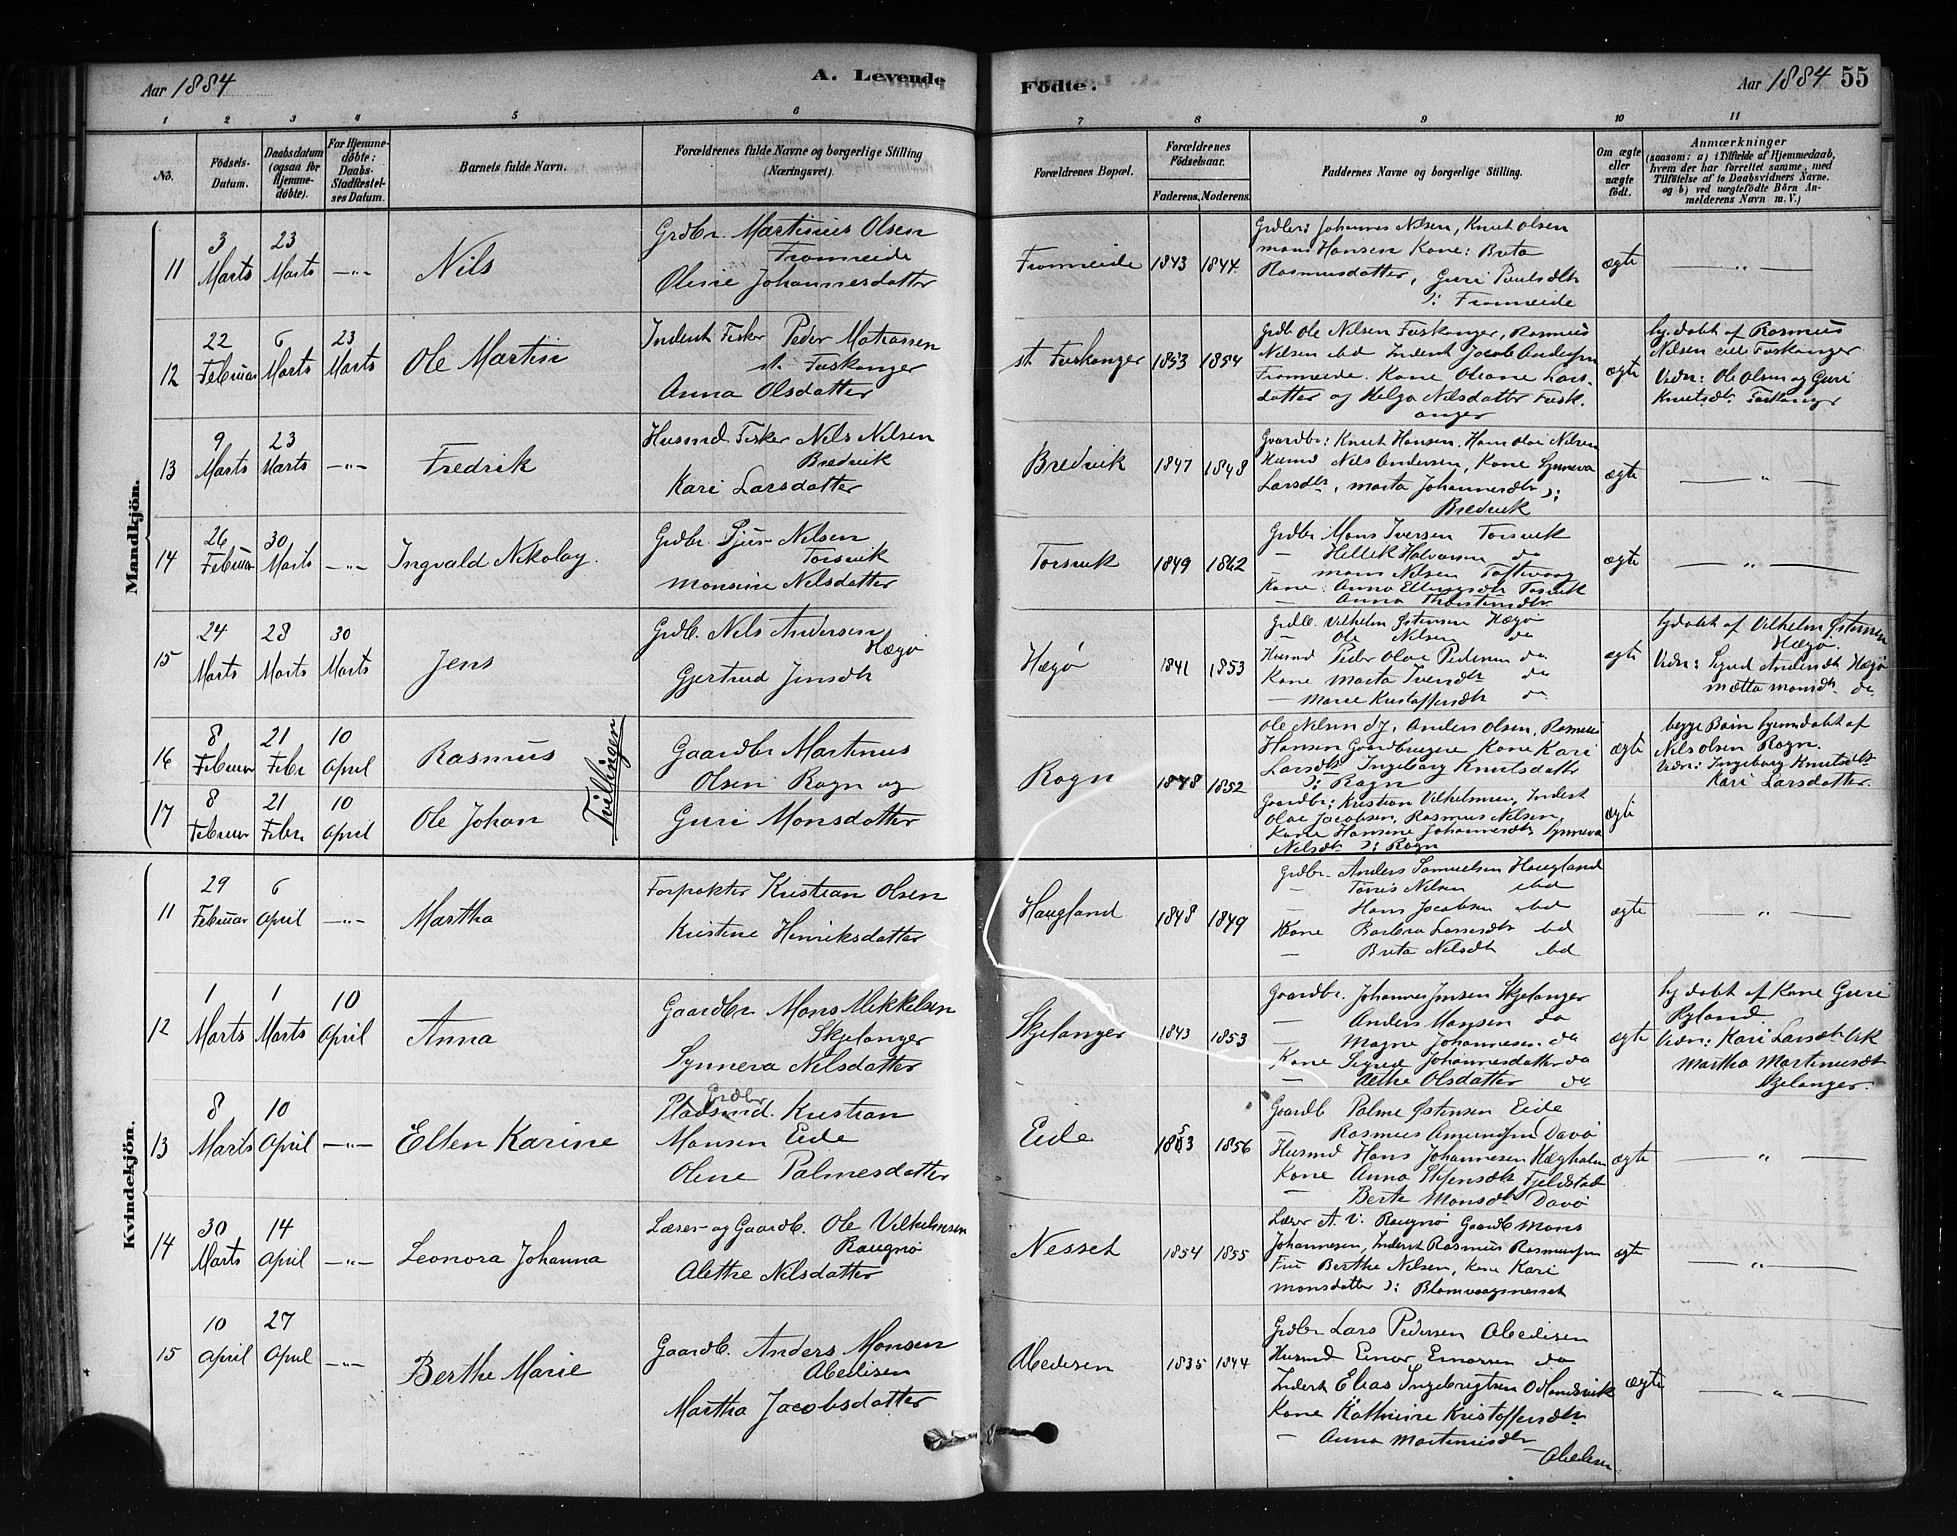 Aar 1884
A. Levende
Födte.
Aar 1884 55
1 2 3 4 5 6 7 8 9 10 11
No.
Födsels-
Datum.
Daabsdatum
(ogsaa for
Hjemme-
döbte).
For Hjemme-
döbte:
Daabs-
Stadfæstel-
ses Datum.
Barnets fulde Navn.
Forældrenes fulde Navne og borgerlige Stilling
(Næringsvei).
Forældrenes Bopæl.
Forældrenes
Födselsaar.
Faderens. Moderens.
Faddernes Navne og borgerlige Stilling.
Om ægte
eller
uægte
født.
Anmærkninger
(saasom: a) i Tilfælde af Hjemmedaab,
hvem der har forrettet samme, med
Tilföielse af to Daabsvidners Navne,
og b) ved uægtefödte Börn An-
melderens Navn m. V.)
Mandkjön.
11
3
Marts
23
Marts
—"—
Nils
Grdbr. Martinus Olsen
Fromreide
Oline Johannesdatter
Fromreide
1843 1844
Grdbr: Johannes Nilsen, Knut Olsen
Mons Hansen Kone: Brita
Rasmusdatter, Guri Paulsdtr
ɔ: Fromreide
ægte
— " —
12
22
Februar
6
Marts
23
Marts
Ole Martin
Inderst Fisker Peder Mathiassen
st. Fuskanger
Anna Olsdatter
st. Fuskanger
1853 1854
Grdb Ole Nilsen Fuskanger, Rasmus
Nilsen ibd Inderst Jacob Andersen
Fromreide. Kone Oliane Lars-
datter og Helga Nilsdatter Fusk-
anger
ægte
hj. døbt af Rasmus
Nilsen Fuskanger
Vidn: Ole Olsen og Guri
Knutsdtr Fuskanger
13
9
Marts
23
Marts
—"—
Fredrik
Husmd Fisker Nils Nilsen
Bredvik
Kari Larsdatter
Bredvik
1847 1848
Gaardbr: Knut Hansen, Hans Olai Nilsen
Husmd Nils Andersen, Kone Synneva
Larsdtr, Marta Johannesdtr ɔ:
Bredvik
ægte
— " —
14
26
Februar
30
Marts
—"—
Ingvald Nikolay.
Grdbr. Sjur Nilsen
Torsvik
Monsine Nilsdatter
Torsvik
1849 1862
Grdbr Mons Iversen Torsvik
— Hellik Halvorsen do
— Mons Nilsen Toftevaag
Kone: Anna Ellingsdtr Torsvik
— Anna Thorstensdtr
ægte
— " —
15
24
Marts
28
Marts
30
Marts
Jens
Grdb. Nils Andersen
Hægø
Gjertrud Jensdtr
Hægø
1841 1853
Grdb. Vilhelm Østensen Hægø
— Ole Nilsen do
Husmd Peder Olai Pedersen do
Kone Marta Iversdtr do
— Marie Kristoffersdtr do
ægte
hj døbt af Vilhelm Østensen
Hægø.
Vidn: Sigrid Andersdtr Hægø
Mætta Monsdtr do
16
8
Februar
21
Febr
10
April
Rasmus
Tvillinger
Gaardbr Martinus
Olsen Rogn og
Guri Monsdatter
Rogn
1848 1852
Ole Nilsen dj, Anders Olsen, Rasmus
Hansen Gaardbrugere Kone Kari
Larsdtr Ingeborg Knutsdatter
ɔ: Rogn
ægte
begge Børn hjemdøbt af
Nils Olsen Rogn.
Vidn: Ingeborg Knutsdtr
Kari Larsdatter.
17
8
Februar
21
Febr
10
April
Ole Johan
Gaardbr: Kristian Vilhelmsen, Inderst
Olai Jacobsen, Rasmus Nilsen,
Kone Hansine Johannesdtr Synneva
Nilsdtr ɔ: Rogn
ægte
Kvindekjön.
11
29
Februar
6
April
—"—
Martha
Forpakter Kristian Olsen
Kristine Henriksdatter
Haugland
1848 1849
Grdbr. Anders Samuelsen Haugland
— Tørris Nilsen ibd
— Hans Jacobsen ibd
Kone Barbra Larsdtr ibd
— Brita Nilsdtr ibd
ægte
— " —
12
1
Marts
1
Marts
10
April
Anna
Gaardbr Mons Mikkelsen
Skjelanger
Synneva Nilsdatter
Skjelanger
1843 1853
Gaardbr. Johannes Jensen Skjelanger
— Anders Hansen do
— Magne Johannesen do
Kone Sigrid Johannesdatter do
— Alethe Olsdatter do
ægte
hj døbt af Kone Guri
Rylond
Vidn: Kari Larsdtr
Martha Martinusdtr
Skjelanger.
13
8
Marts
10
April
—"—
Ellen Karine
Grdbr
Pladsmd. Kristian
Monsen Eide
Olene Palmesdatter
Eide
1853 1856
Gaardb Palme Østensen Eide
— Rasmus Amundsen Davø
Husmd Hans Johannesen Hægholm
Kone Anna Steffensdtr Fjeldstad
— Berte Monsdtr Davø
ægte
— " —
14
30
Marts
14
April
—"—
Leonora Johanna
Lærer og Gaardb. Ole Vilhelmsen
Raugnø
Alethe Nilsdatter
Nesset
1854 1855
Lærer A. V. Raugnø Gaardb Mons
Johannesen, Inderst Rasmus Rasmussen
Fru Berthe Nilsen, Kone Kari
Monsdatter ɔ: Blomvaagsnesset
ægte
— " —
15
10
April
27
April
—"—
Berthe Marie
Gaardb. Anders Monsen
Abedisen
Martha Jacobsdatter
Abedisen
1835 1844
Grdbr Lars Pedersen Abedisen
Husmd Einar Einarsen do
Inderst Elias Ingebrigtsen
Kone Kathrine Kristoffersdtr
— Anna Martinusdtr
— Abedisen
ægte
— " —